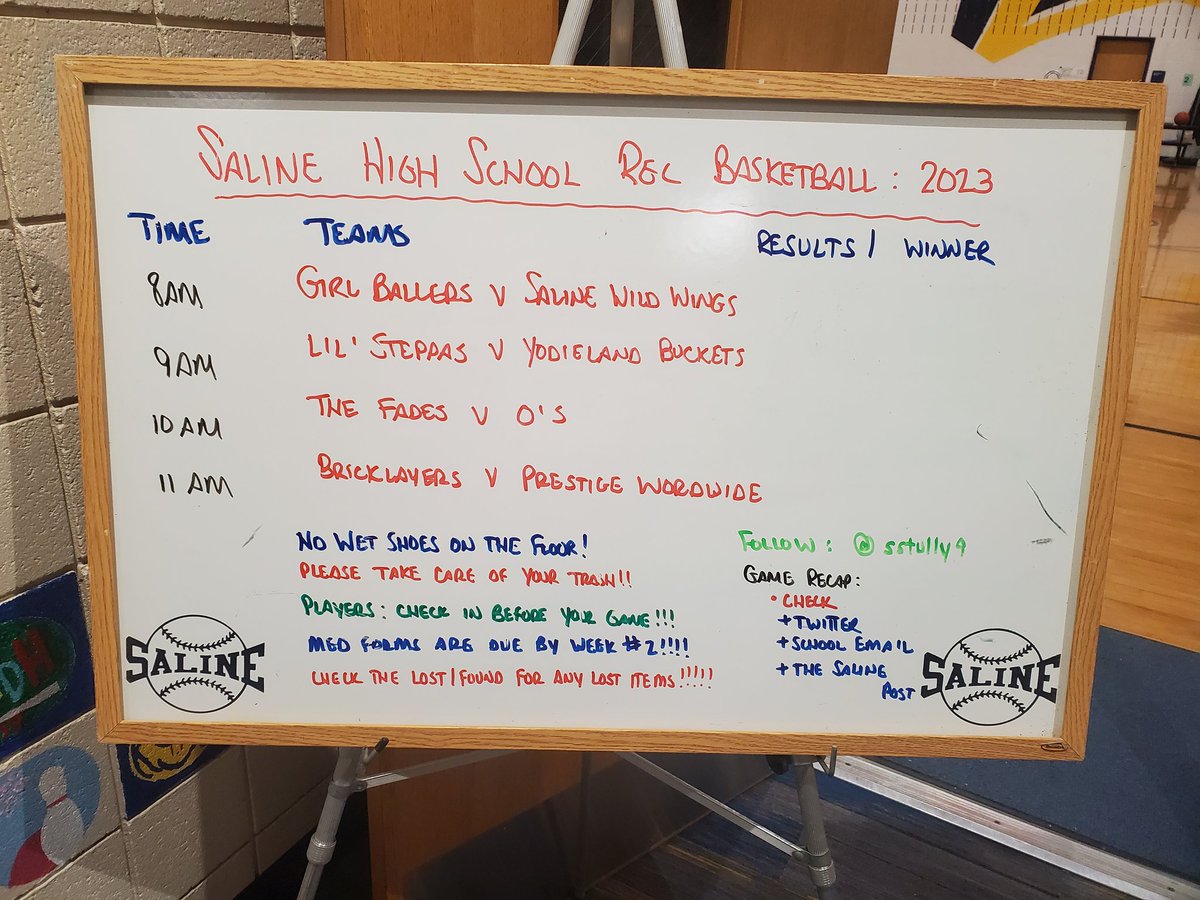 SALINE HIGH SCHOOL REC BASKETBALL: 2023
TIME TEAMS RESULTS / WINNER
8AM GIRL BALLERS V SALINE WILD WINGS
9AM LIL' STEPPAS V YODIELAND BUCKETS
10 AM THE FADES V O'S
11 AM BRICKLAYERS V PRESTIGE WORDWIDE
NO WET SHOES ON THE FLOOR!
PLEASE TAKE CARE OF YOUR TRASH!!
PLAYERS: CHECK IN BEFORE YOUR GAME!!!
MED FORMS ARE DUE BY WEEK #2!!!!
CHECK THE LOST/FOUND FOR ANY LOST ITEMS!!!!!
FOLLOW: @sstully9
GAME RECAP:
• CHECK
+ TWITTER
+ SCHOOL EMAIL
+ THE SALINE
POST
SALINE
SALINE